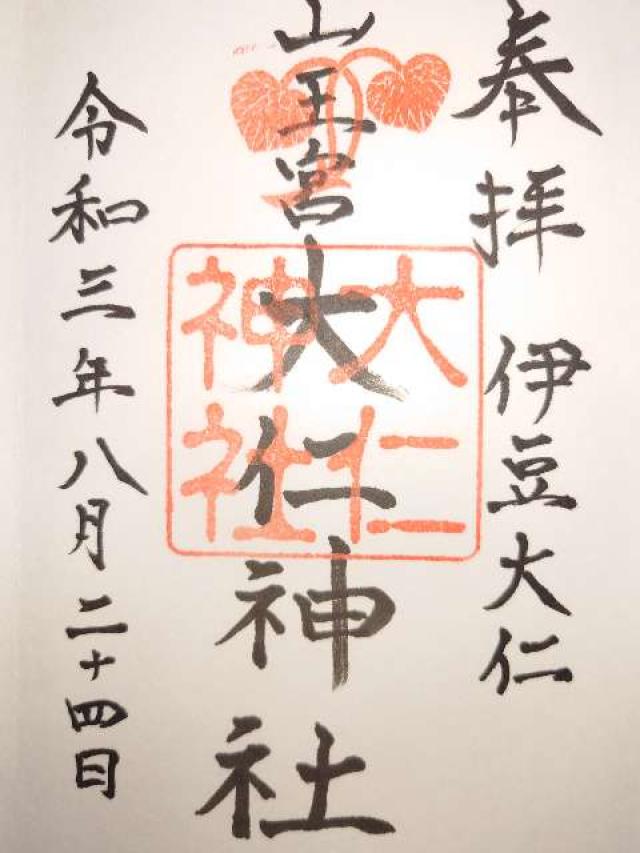 奉拝 伊豆大仁
山王宮大仁神社
大仁
神社
令和三年八月二十四日